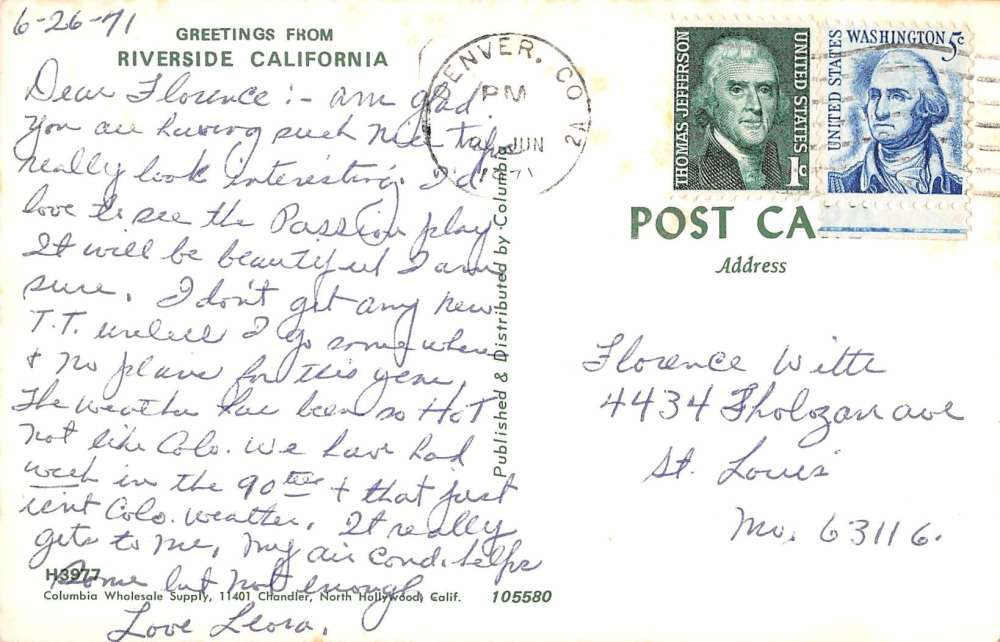 6-26-71
GREETINGS FROM
RIVERSIDE CALIFORNIA
Dear Florence:- am glad
you are having such nice trips
really look interesting. I'd
love to see the Passion play
It will be beautiful I am
sure. I don't get any new
T.T. unless I go somewhere
& no plans for this year.
The weather has been so Hot
not like Colo. We have had
week in the 90ties & that just
isnt Colo. weather. It really
gets to me, my air cond. helps
some but not enough
Love Leora.
H3977
Columbia Wholesale Supply, 11401 Chandler, North Hollywood, Calif.
105580
Published & Distributed by Columbia
DENVER, CO
PM
JUN
1971
THOMAS JEFFERSON
UNITED STATES
1c
UNITED STATES
WASHINGTON 5c
POST CA
Address
Florence Witte
4434 Tholozan ave
St. Louis
Mo. 63116.